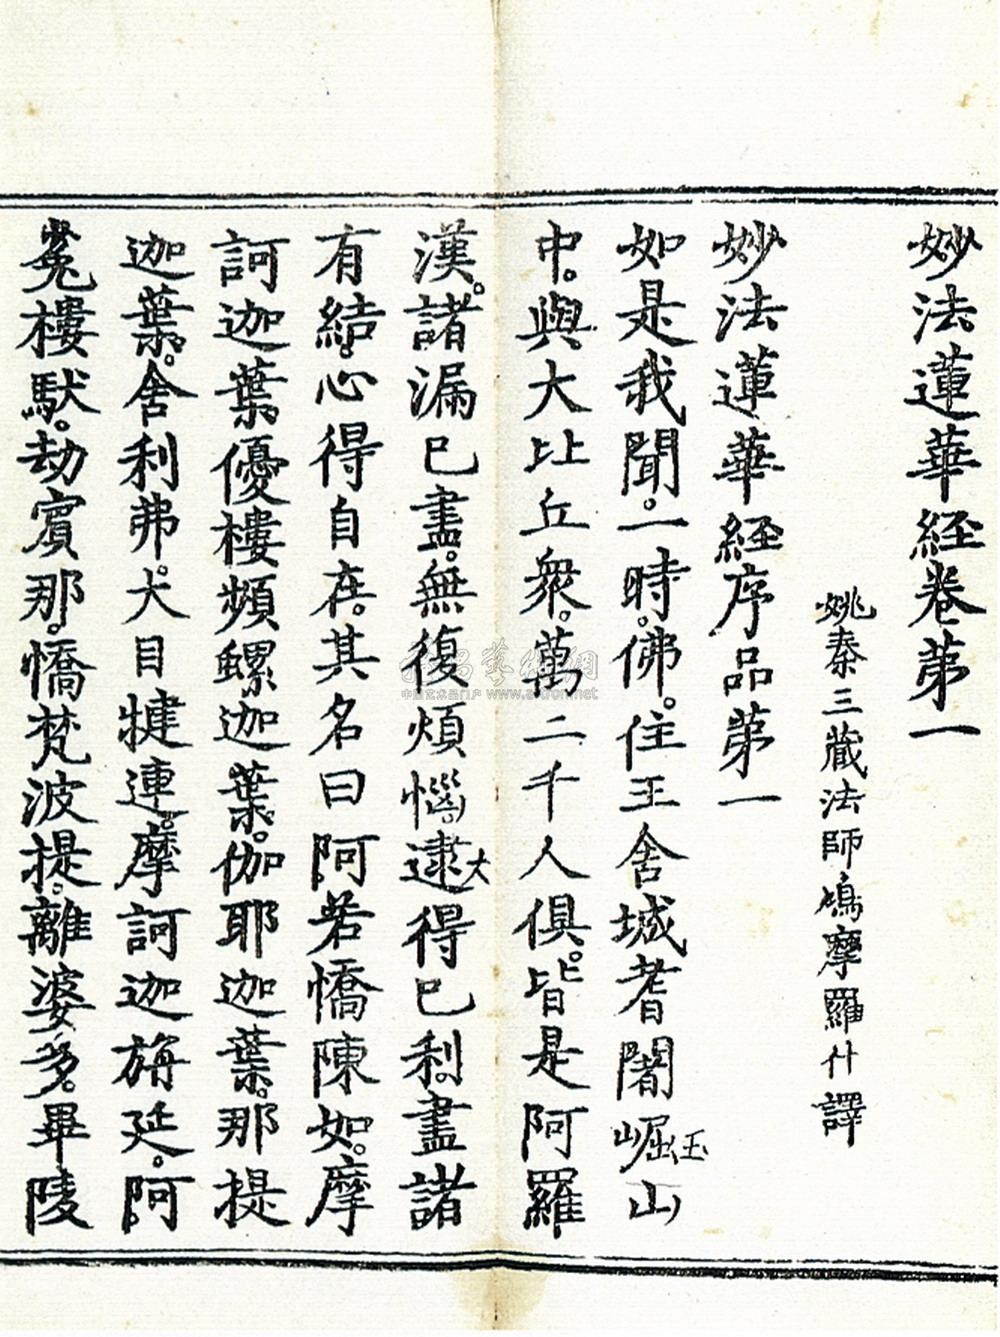 妙法蓮華經卷第一
姚秦三藏法師鳩摩羅什譯
妙法蓮華經序品第一
如是我聞。一時。佛。住王舍城耆闍崛山
玉
中。與大比丘衆。萬二千人俱。皆是阿羅
漢。諸漏已盡。無復煩惱。逮得已利。盡諸
大
有結。心得自在。其名曰阿若憍陳如。摩
訶迦葉。優樓頻螺迦葉。伽耶迦葉。那提
迦葉。舍利弗。大目犍連。摩訶迦旃延。阿
㝹樓馱。劫賓那。憍梵波提。離婆多。畢陵
www.artron.net